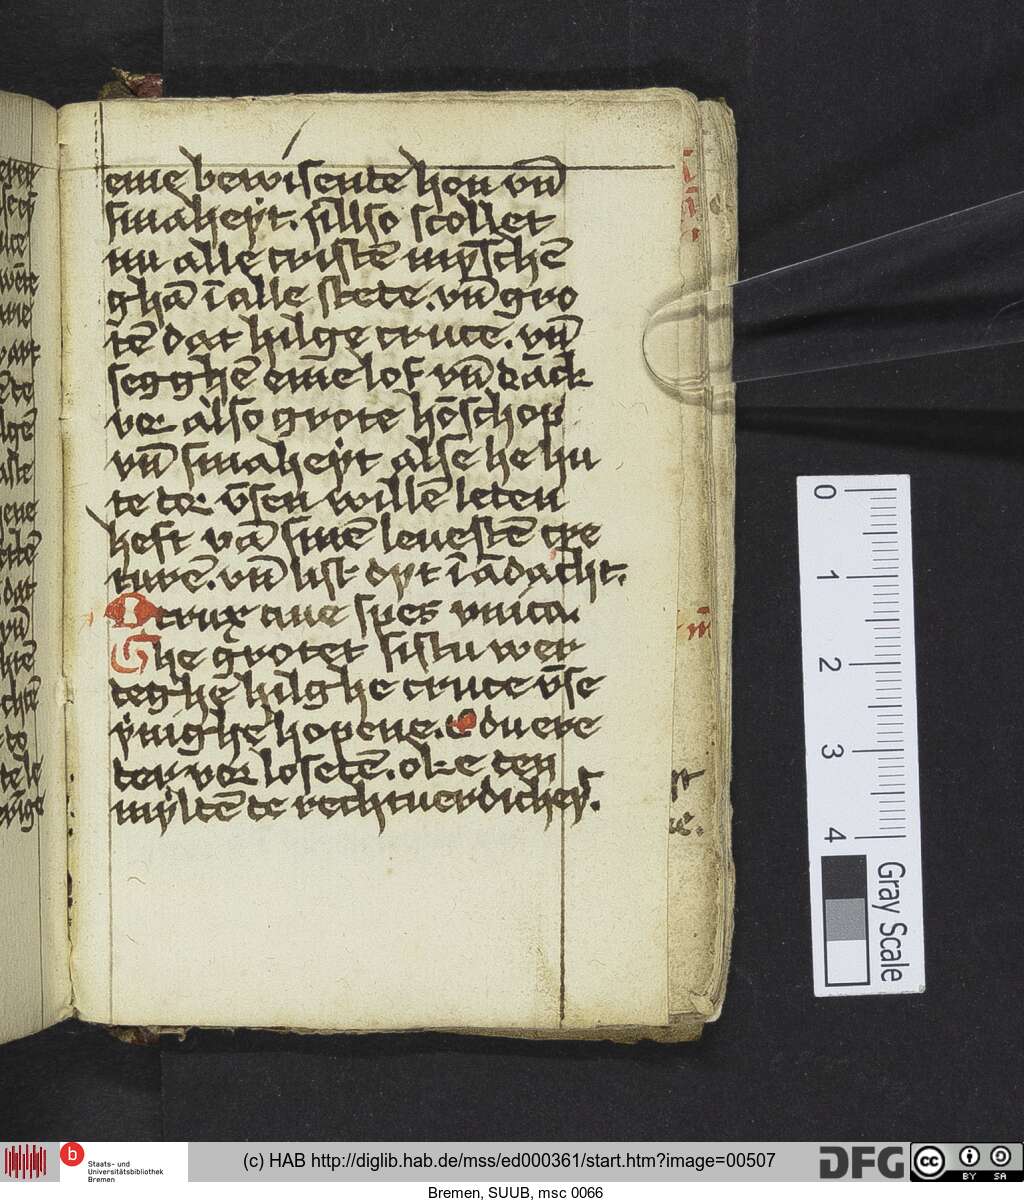 eme bewisente hon vn̄
smaheẏt. sillso scollet
nu alle cristē mẏschē
ghā ī alle stete. vn̄ gro
tē dat hilge cruce. vn̄
segghē eme lof vn̄ dāck
vor also grote hōschop
vn̄ smaheẏt alse he hu
te dor v̄sen willē leten
heft vā sinē leuestē cre
turē. vn̄ list dẏt ī ādacht.
O crux aue spes vnica.
Ghe grotet sistu wer
deghe hilghe cruce v̄se
ẏnighe hopene. O du ere
der vor losetē. oke den
mẏldē de rechtuerdicheẏt.
0
1
2
3
4
Gray Scale
b Staats- und
Universitätsbibliothek
Bremen
(c) HAB http://diglib.hab.de/mss/ed000361/start.htm?image=00507
DFG
cc BY SA
Bremen, SUUB, msc 0066